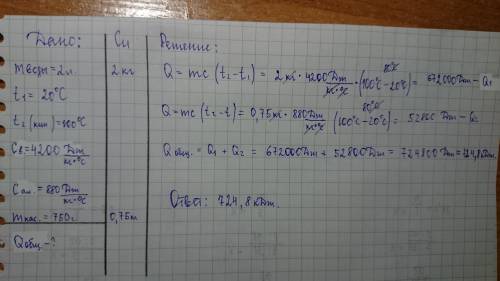 Дано:
mводы = 2л.
t₁ = 20°C
t₂ (кип) = 100°C
Cв = 4200 Дж/кг·°C
Cал. = 880 Дж/кг·°C
mкас. = 750г.
Qобщ. - ?
Си
2 кг
0,75кг
Решение:
80°C
Q = mc (t₂ - t₁) = 2 кг · 4200 Дж/кг·°C · (100°C - 20°C) = 672000 Дж - Q₁
80°C
Q = mc (t₂ - t₁) = 0,75 кг · 880 Дж/кг·°C (100°C - 20°C) = 52800 Дж - Q₂
Qобщ. = Q₁ + Q₂ = 672000 Дж + 52800 Дж = 724800 Дж = 724,8 кДж
Ответ: 724,8 кДж.